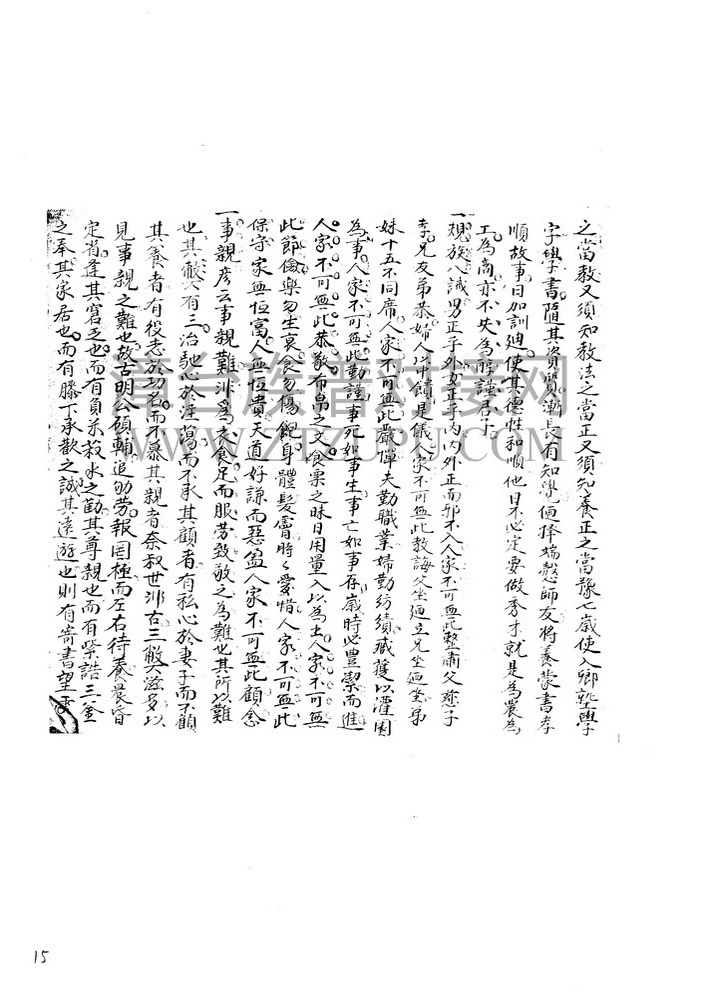 之當教又須知教法之當正又須知養正之當豫七歲使入鄉塾學
字學書隨其資質漸長有知覺便擇端慤師友將養蒙書孝
順故事日加訓迪使其德性和順他日不必定要做秀才就是為農為
工為商亦不失為醇謹君子
一規族八誡男正乎外女正乎內內外正而邪不入人家不可無此整肅父慈子
孝兄友弟恭婦人以中饋是儀人家不可無此教誨父坐迺立兄坐迺坐弟
妹十五不同席人家不可無此嚴憚夫勤職業婦勤紡績臧獲以灌園
為事人家不可無此勤謹事死如事生事亡如事存歲時必豐潔而進
人家不可無此恭敬布帛之文食粟之味日用量入以為出人家不可無
此節儉樂勿生哀食勿傷飽身體髮膚時時愛惜人家不可無此
保守家無恒富人無恒貴天道好謙而惡盈人家不可無此顧念
一事親彥云事親難非為衣食足而服勞致敬之為難也其所以難
也其蔽大有三治馳心於淫蕩而不承其顧者有私心於妻子而不顧
其養者有役志於功名而不慕其親者奈叔世非古三弊滋多以
見事親之難也故古明公領輔追劬勞報罔極而左右待養晨昏
定省逢其窘乏也而有負米菽水之勸其尊親也而有紫誥三釜
之奉其家居也而有膝下承歡之誠其遠遊也則有寄書望雲
库台族谱对接网
WWW.ZIZUPU.COM
15